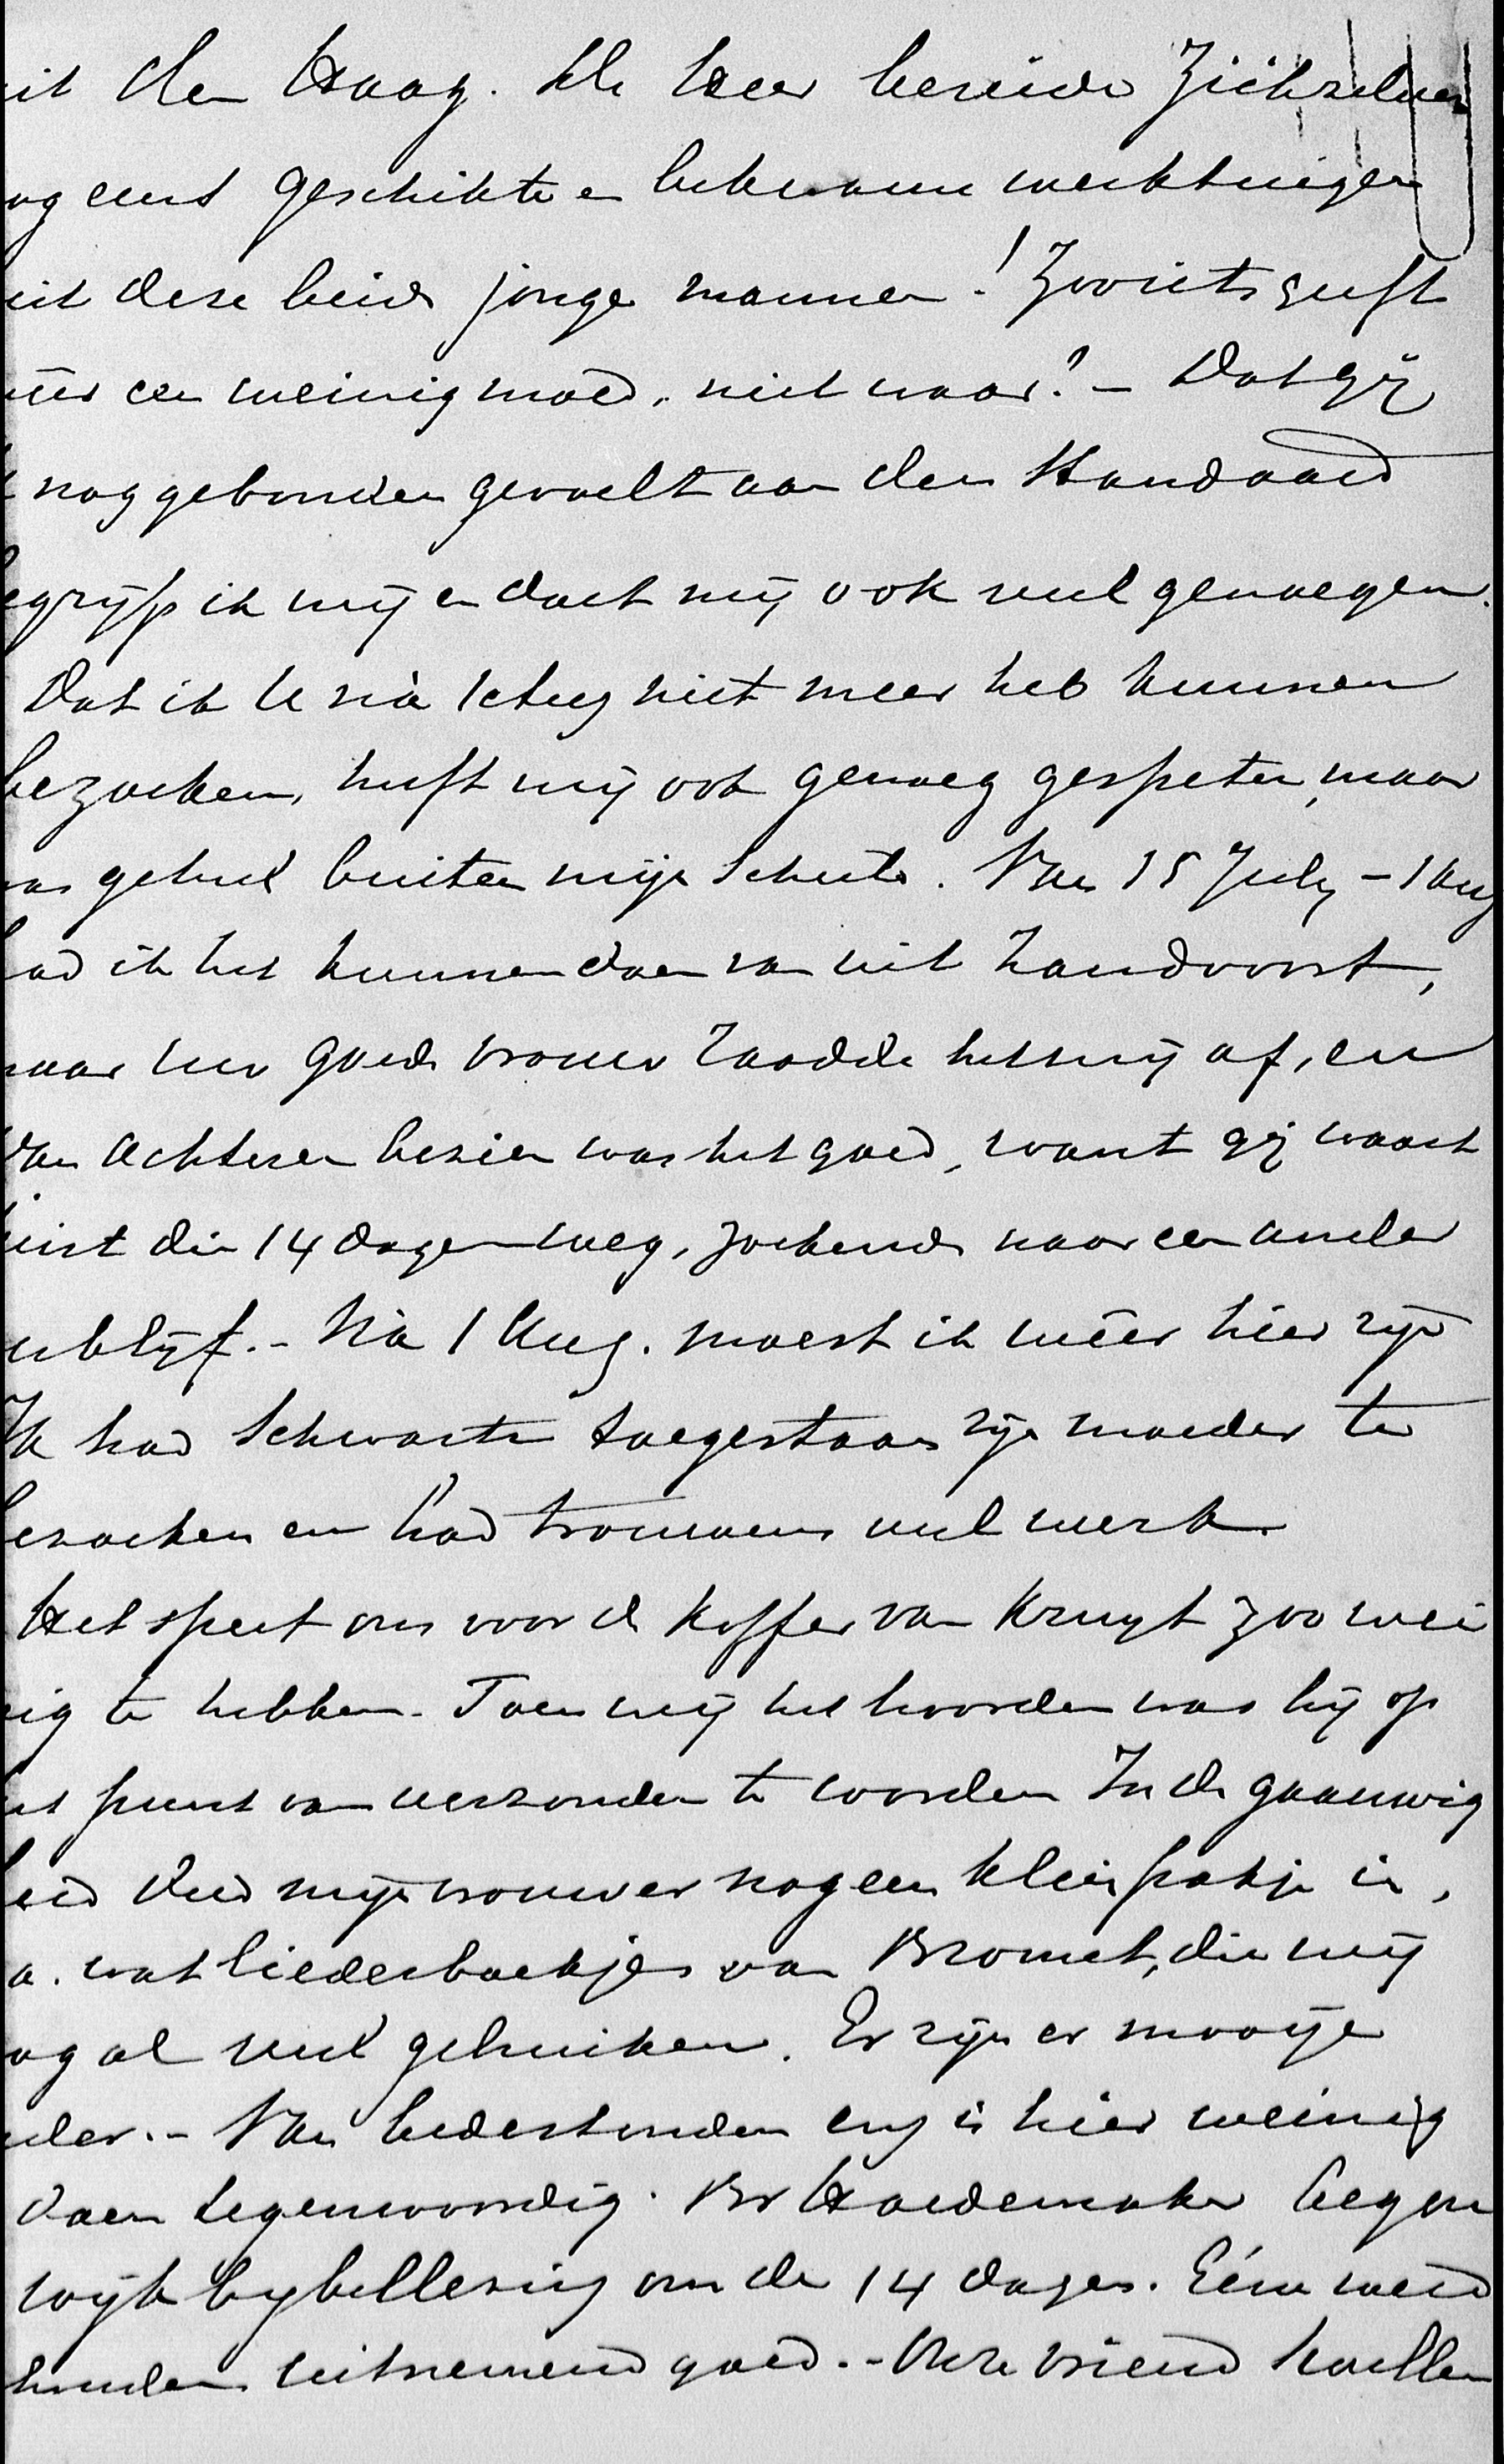 uit den Haag. De Heer bereide Zichzelven
nog eens geschikte en bekwame werktuigen
uit deze beide jonge mannen! Zooiets geeft
weêr een weinig moed, niet waar? – Dat gij
nog gebonden gevoelt aan den
egrijp ik mij en doet mij ook veel genoegen.
Dat ik U nà 1 Aug niet meer heb kunnen
bezoeken, heeft mij ook genoeg gespeten, maar
was geheel buiten mijn schuld. Van 15 July – 1 Aug
had ik het kunnen doen van uit Zandvoort,
maar uw goede vrouw raadde het mij af, en
van achteren bezien was het goed, want gij waart
juist die 14 dagen weg, zoekende naar een ander
verblijf. – Nà 1 Aug. moest ik wéer hier zijn
Ik had Schwartz toegestaan zijn moeder te
bezoeken en had trouwens veel werk.
Het speet ons voor de koffer van Kruyt zoo wei
nig te hebben. Toen wij het hoorden was hij op
het punt van verzonden te worden In de gaauwig
heid deed mijn vrouw er nog een klein pakje in,
a. wat liederboekjes van Bromet, die wij
nog al veel gebruiken. Er zijn er mooije
onder. – Van bidstonden enz is hier weinig
doen tegenwoordig. Br Hoedemaker begon
wijk bybellezing om de 14 dagen. Eéne werd
houden uitnemend goed. – Onze vriend